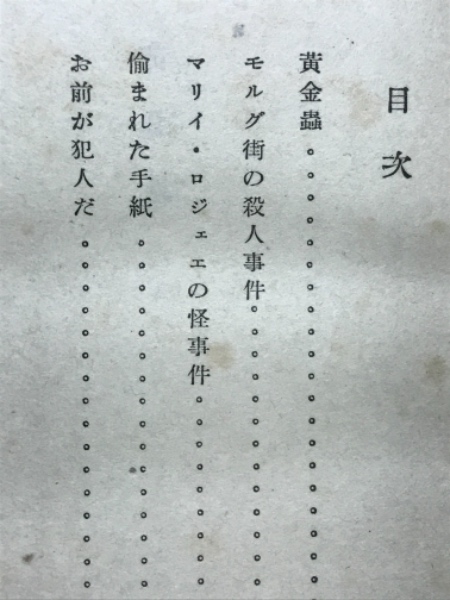 目次
黃金蟲。。。。。。。。。。。。。。。。。。。。
モルグ街の殺人事件。。。。。。。。。。。。。
マリイ・ロジェエの怪事件。。。。。。。。。
偷まれた手紙。。。。。。。。。。。。。。。。
お前が犯人だ。。。。。。。。。。。。。。。。